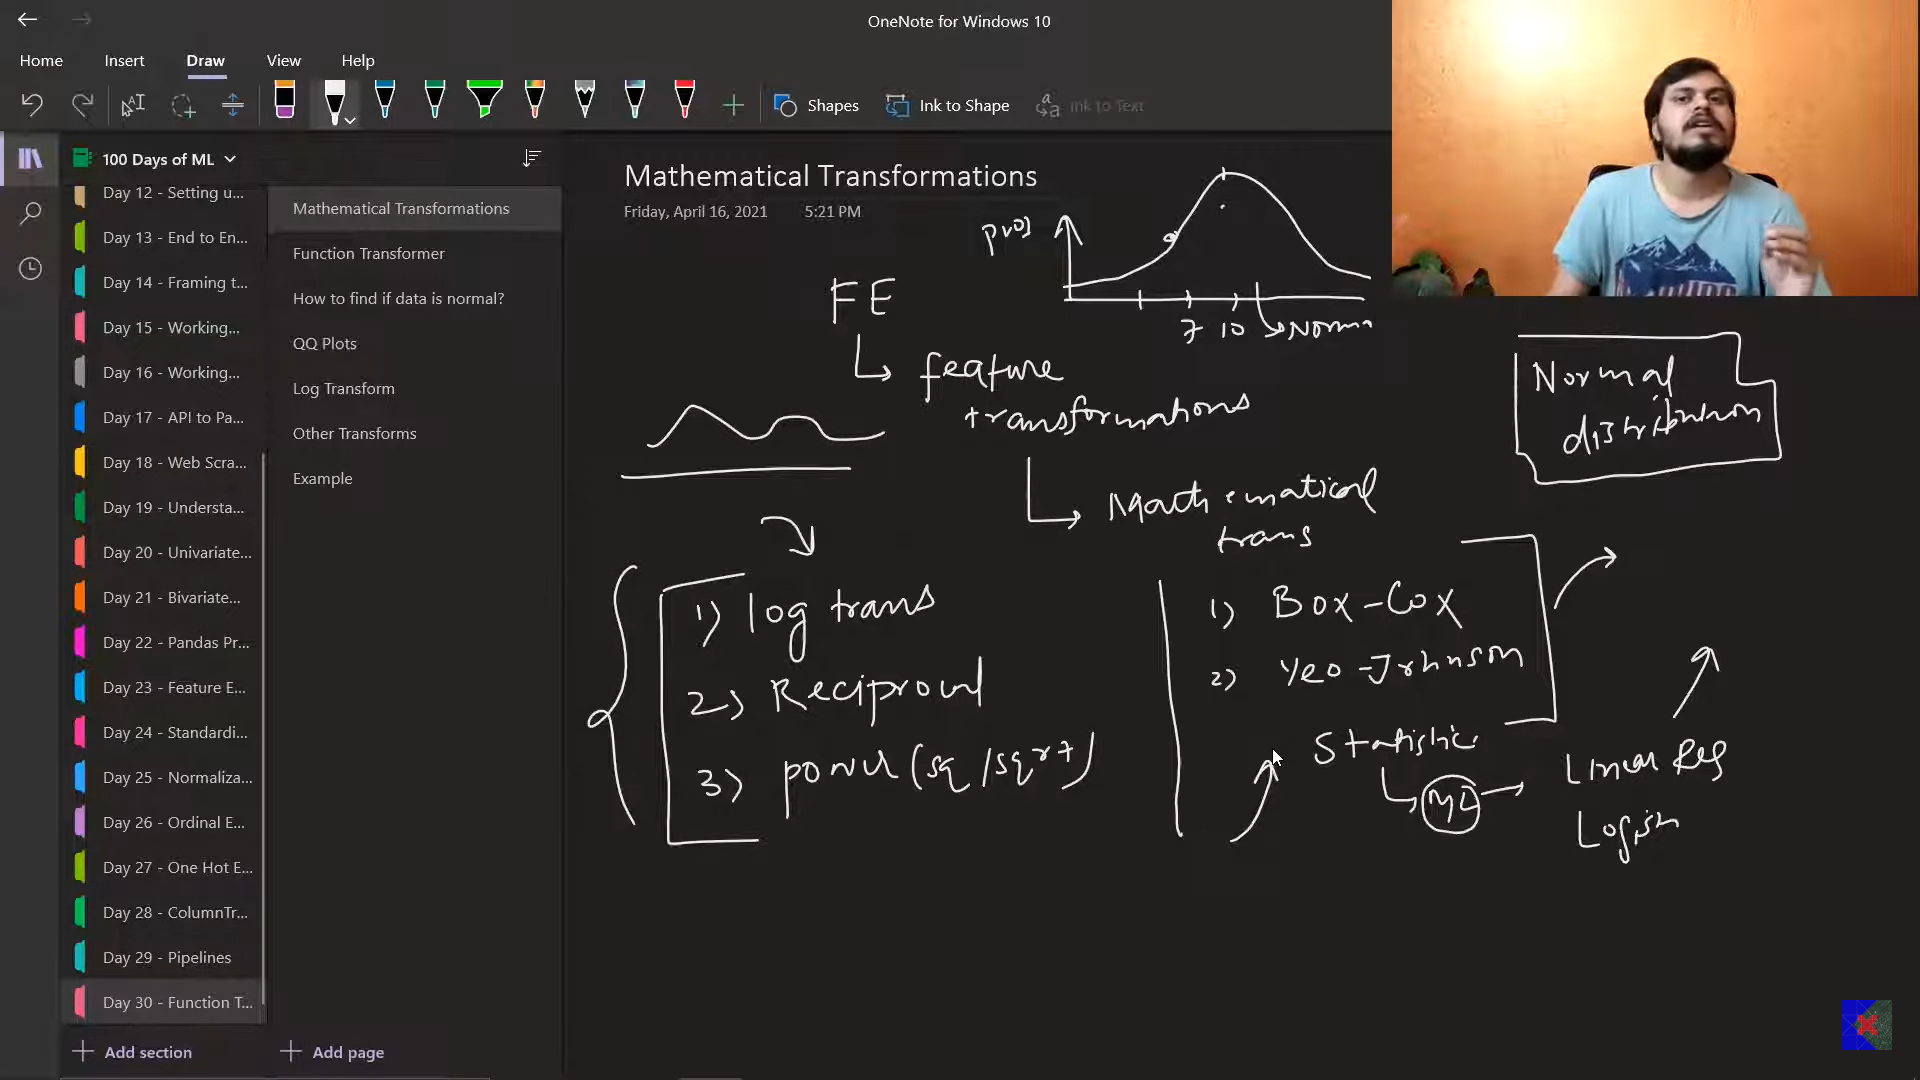 OneNote for Windows 10
Home Insert Draw View Help
Shapes Ink to Shape Ink to Text
100 Days of ML
Day 12 - Setting u...
Day 13 - End to En...
Day 14 - Framing t...
Day 15 - Working...
Day 16 - Working...
Day 17 - API to Pa...
Day 18 - Web Scra...
Day 19 - Understa...
Day 20 - Univariate...
Day 21 - Bivariate...
Day 22 - Pandas Pr...
Day 23 - Feature E...
Day 24 - Standardi...
Day 25 - Normaliza...
Day 26 - Ordinal E...
Day 27 - One Hot E...
Day 28 - ColumnTr...
Day 29 - Pipelines
Day 30 - Function T...
Add section
Mathematical Transformations
Function Transformer
How to find if data is normal?
QQ Plots
Log Transform
Other Transforms
Example
Add page
Mathematical Transformations
Friday, April 16, 2021 5:21 PM
7 10 Norma
FE
feature
transformations
Mathematical
trans
Normal
distribution
1) log trans
2) Reciprocal
3) power (sq/sqrt)
1) Box-Cox
2) Yeo-Johnson
Statistic
ML
Linear Reg